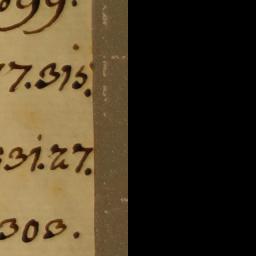 699.
7.315.
331.27.
303.